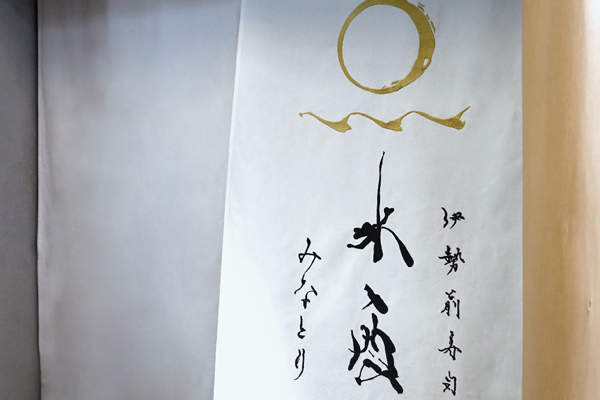 伊勢前寿司
水
みなとり